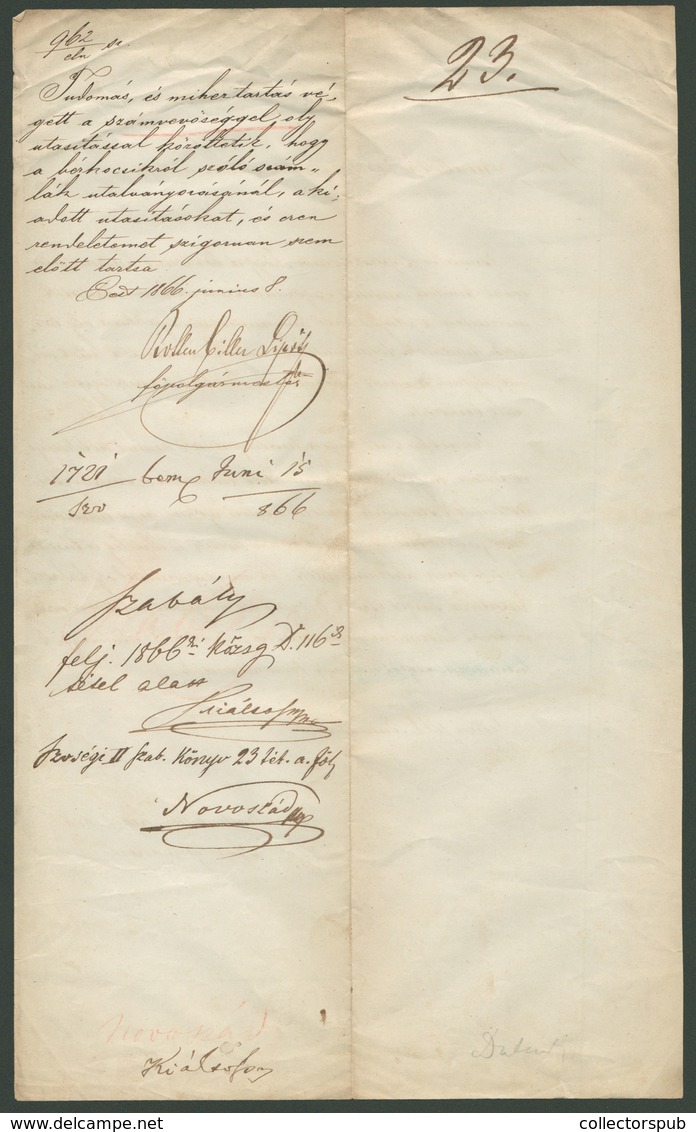 962
eln sz.
23.
Tudomás, és mihez tartás vé-
gett a számvevőséggel, oly
utasitással közöltetik, hogy
a bérkocsikról szóló szám-
lák utalványozásánál, a ki-
adott utasitásokat, és ezen
rendeletemet szigoruan szem
előtt tartsa
Pest 1866. junius 8.
Rottenbiller Lipót
főpolgármester
1721 Juni 15
szv 866
Szabály
felj. 1866 Község D. 116
tétel alatt
Szvségi II szab. Könyv 23 tét. a. földj
Novoszád
Novoszád